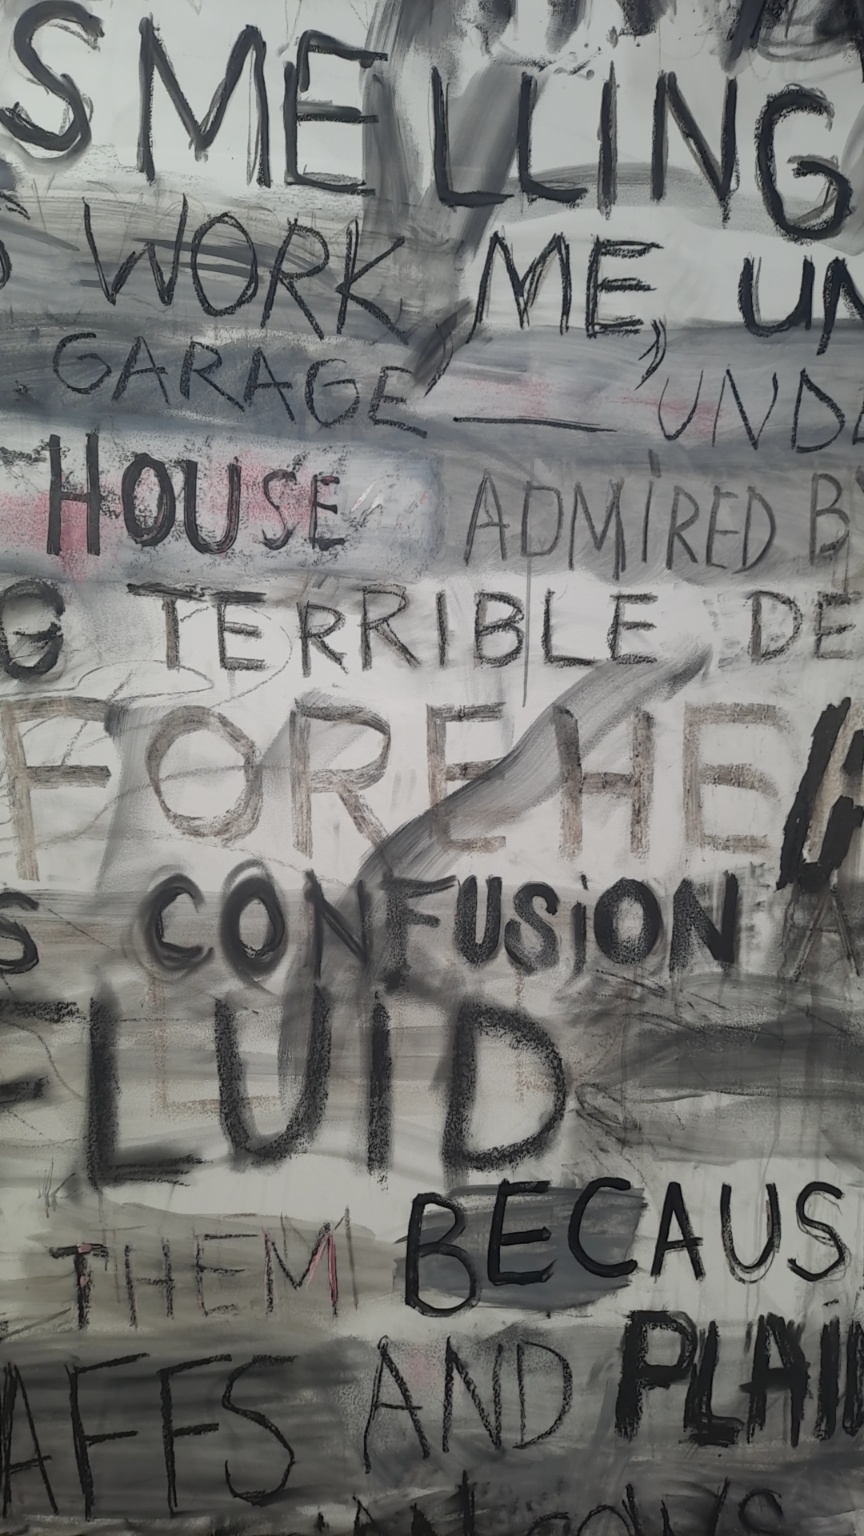 SMELLING
WORK, ME, UN
GARAGE — UNDE
HOUSE ADMIRED BY
G TERRIBLE DE
FOREHEA
S CONFUSION
FLUID
THEM BECAUS
AFFS AND PLAIN
COWS